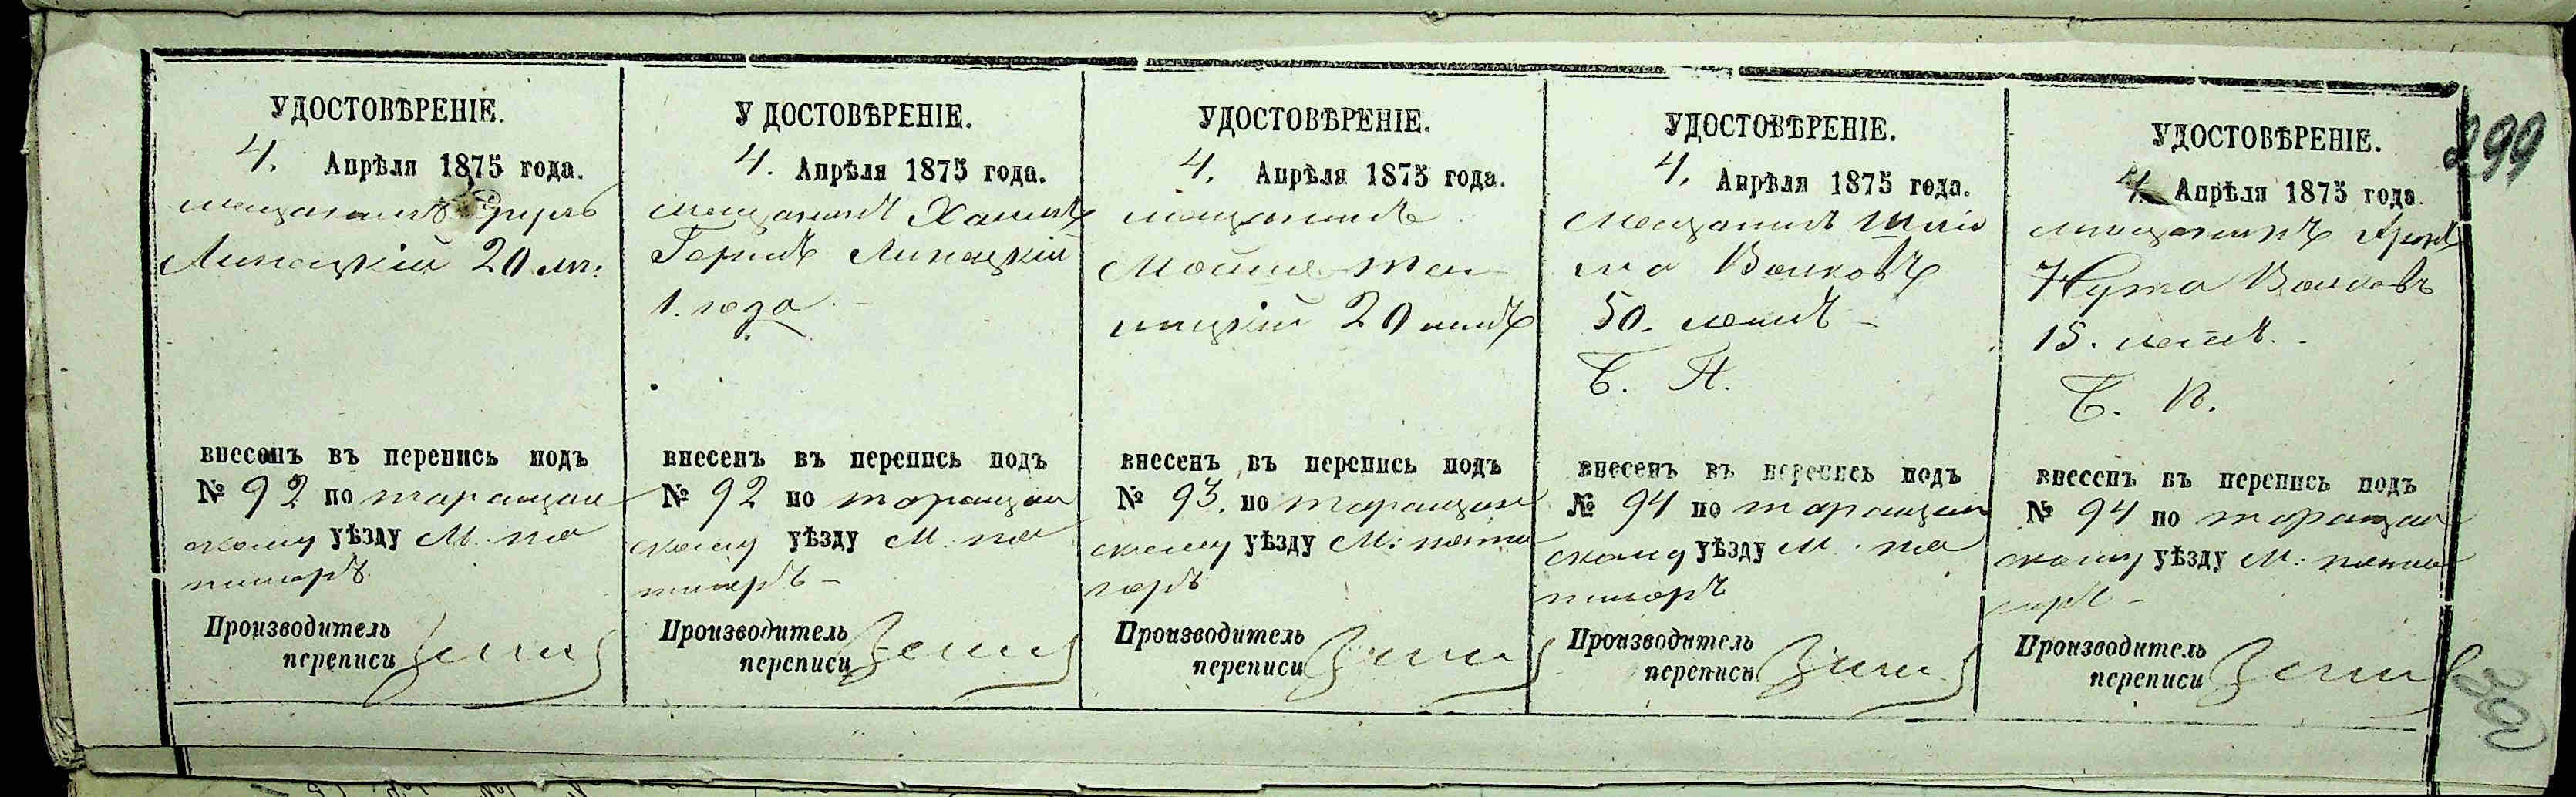 УДОСТОВѢРЕНІЕ.
4. Апрѣля 1875 года.
мещанинъ
Липецкій 20 лѣ:
внесенъ въ перепись подъ
№ 92 по таращан
скому уѣзду М. пя
тигоръ
Производитель
переписи
УДОСТОВѢРЕНІЕ.
4. Апрѣля 1875 года.
мещанинъ Хаимъ
Гершъ Липецкій
1. года
внесенъ въ перепись подъ
№ 92 по таращан
скому уѣзду М. пя
тигоръ
Производитель
переписи
УДОСТОВѢРЕНІЕ.
4. Апрѣля 1875 года.
мещанинъ
20 летъ
внесенъ въ перепись подъ
№ 93. по таращан
скому уѣзду М: пяти
горъ
Производитель
переписи
УДОСТОВѢРЕНІЕ.
4. Апрѣля 1875 года.
мещанинъ Шліо
ма Волковъ
50. летъ
Б. П.
внесенъ въ перепись подъ
№ 94 по таращан
скому уѣзду М. пя
тигоръ
Производитель
переписи
УДОСТОВѢРЕНІЕ.
4. Апрѣля 1875 года.
мещанинъ
Нута Волковъ
15. летъ.
Б. П.
внесенъ въ перепись подъ
№ 94 по таращан
скому уѣзду М: пяти
горъ
Производитель
переписи
299